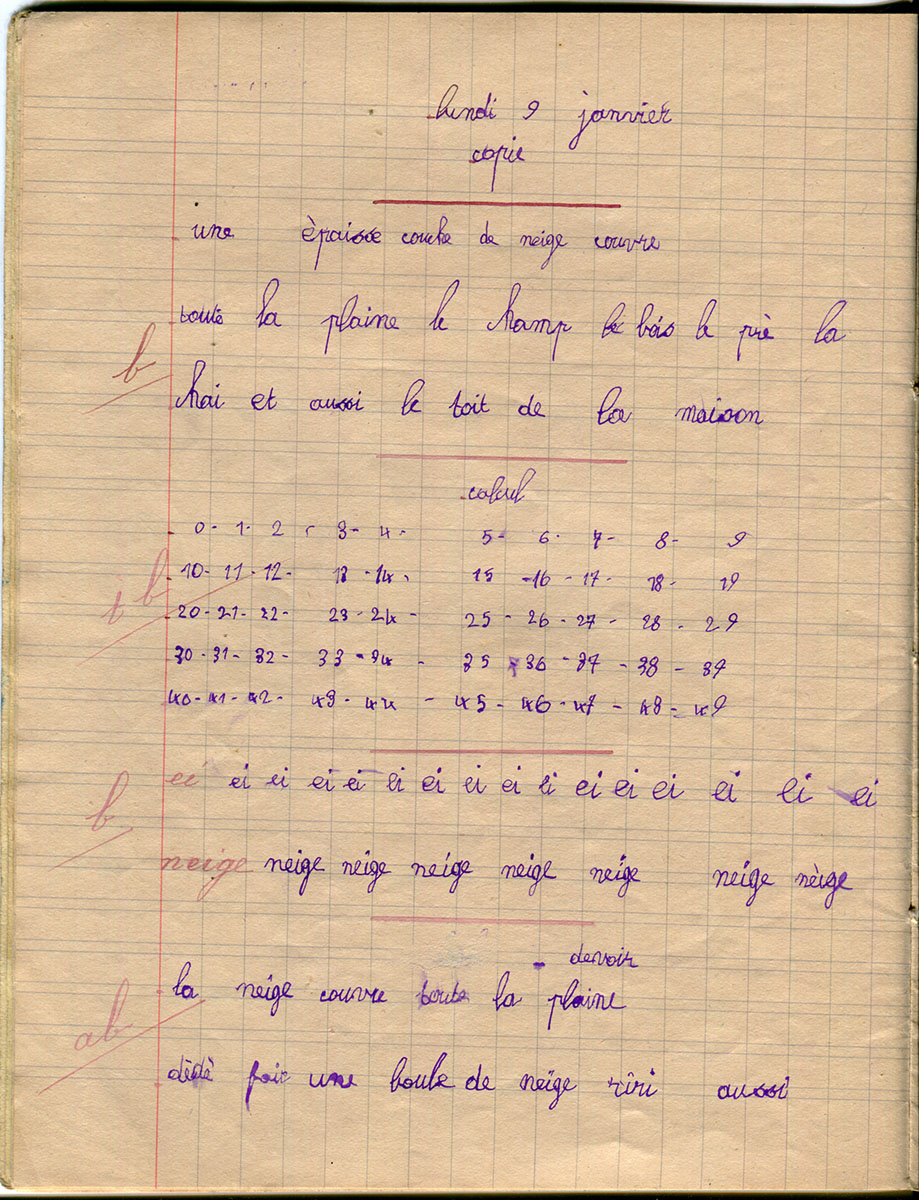 lundi 9 janvier
copie
une èpaisse couche de neige couvre
toute la plaine le champ le bois le prè la
hai et aussi le toit de la maison
b
calcul
0 - 1 - 2 - 3 - 4 - 5 - 6 - 7 - 8 - 9
10 - 11 - 12 - 13 - 14 - 15 - 16 - 17 - 18 - 19
tb
20 - 21 - 22 - 23 - 24 - 25 - 26 - 27 - 28 - 29
30 - 31 - 32 - 33 - 34 - 35 - 36 - 37 - 38 - 39
40 - 41 - 42 - 43 - 44 - 45 - 46 - 47 - 48 - 49
ei ei ei ei ei ei ei ei ei ei ei ei ei ei ei ei
b
neige neige neige neige neige neige neige neige
devoir
la neige couvre toute la plaine
ab
dèdè fait une boule de neige riri aussi